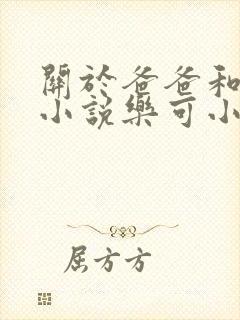 關於爸爸和
小說樂可小
屈方方